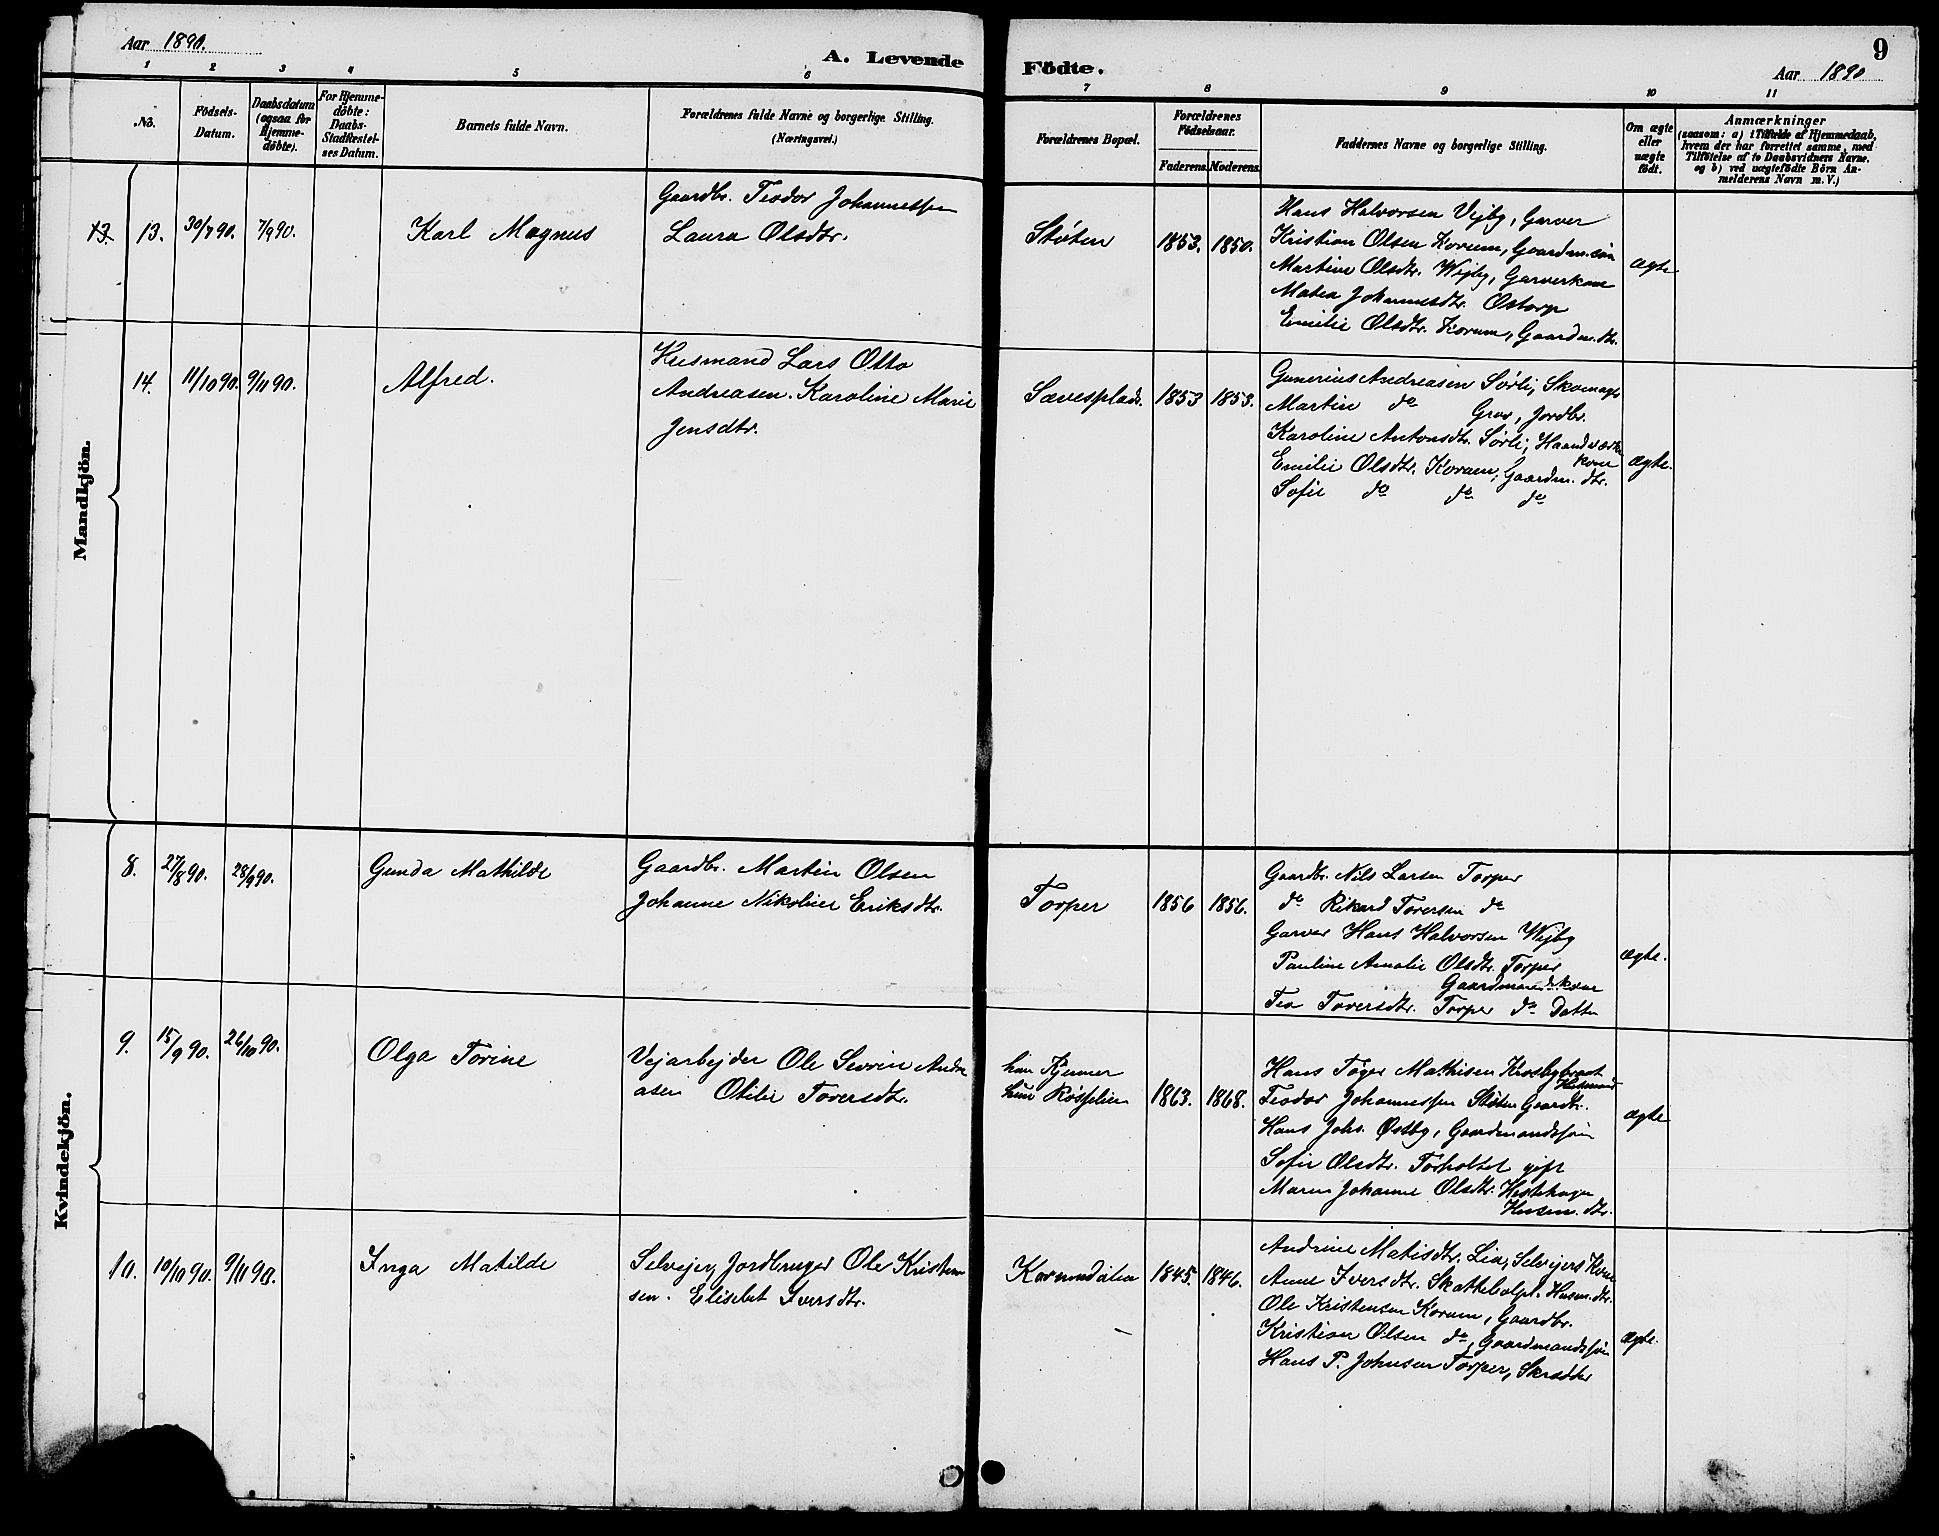 Aar 1890.
A. Levende Födte.
9
Aar 1890
1 2 3 4 5 6 7 8 9 10 11
No.
Födsels-
Datum.
Daabsdatum
(ogsaa for
Hjemme-
døbte).
For Hjemme-
döbte:
Daabs-
Stadfestel-
ses Datum.
Barnets fulde Navn.
Forældrenes fulde Navne og borgerlige Stilling.
(Næringsvei.)
Forældrenes Bopæl.
Forældrenes
Födselsaar.
Faderens. Moderens.
Faddernes Navne og borgerlige Stilling.
Om ægte
eller
uægte
födt.
Anmærkninger
(saasom: a) i Tilfælde af Hjemmedaab,
hvem der har forrettet samme, med
Tilföielse af to Daabsvidners Navne.
og b) ved uægtefödte Börn An-
melderens Navn m. V.)
Mandkjön.
13. 13. 30/7 90. 7/9 90.
Karl Magnus
Gaardbr. Teodor Johannessen
Laura Olsdtr.
Støten
1853. 1850.
Hans Halvorsen Vejby, Garver
Kristian Olsen Korum, Gaardm. søn
Martine Olsdtr. Wejby, Garverkone
Matea Johannesdtr. Ostorp
Emilie Olsdtr. Korum, Gaardm. dtr.
ægte
14. 11/10 90. 9/11 90.
Alfred.
Husmand Lars Otto
Andreasen. Karoline Marie
Jensdtr.
Sævesplads.
1853 1853.
Gunerius Andreasen Sørli, Skomager
Martin do Grav, Jordbr.
Karoline Antonsdtr. Sørli, Haandværk
kone
Emilie Olsdtr. Korum, Gaardm. dtr.
Sofie do do do
ægte.
Kvindekjön.
8. 27/8 90. 28/9 90.
Gunda Mathilde
Gaardbr. Martin Olsen
Johanne Nikoline Eriksdtr.
Torper
1856 1856.
Gaardbr. Nils Larsen Torper
do Rikard Torersen do
Garver Hans Halvorsen Wejby
Pauline Amalie Olsdtr. Torper
Gaardmandskone
Tea Toversdtr. Torper do Datter
ægte.
9. 15/9 90. 26/10 90.
Olga Torine
Vejarbejder Ole Severin Andre
asen Otilie Toversdtr.
han Kjenner
hun Røsslien
1863. 1868.
Hans Tøger Mathisen Krosbybraat
Husmand
Teodor Johannessen Støten Gaardbr.
Hans Johs. Østby, Gaardmandssøn
Sofie Olsdtr. Torholtet gift
Maren Johanne Olsdtr. Hestehagen
Husm. dtr.
ægte
10. 10/10 90. 9/11 90.
Inga Matilde
Selvejer, Jordbruger Ole Kristen
sen. Elisebet Iversdtr.
Korumdalen
1845. 1846.
Andrine Matisdtr. Lia, Selvejers Kone
Anne Iversdtr. Skattebølpl. Husm. dtr.
Ole Kristensen Korum, Gaardbr.
Kristian Olsen do, Gaardmandssøn
Hans P. Johnsen Torper, Skrædder
ægte.